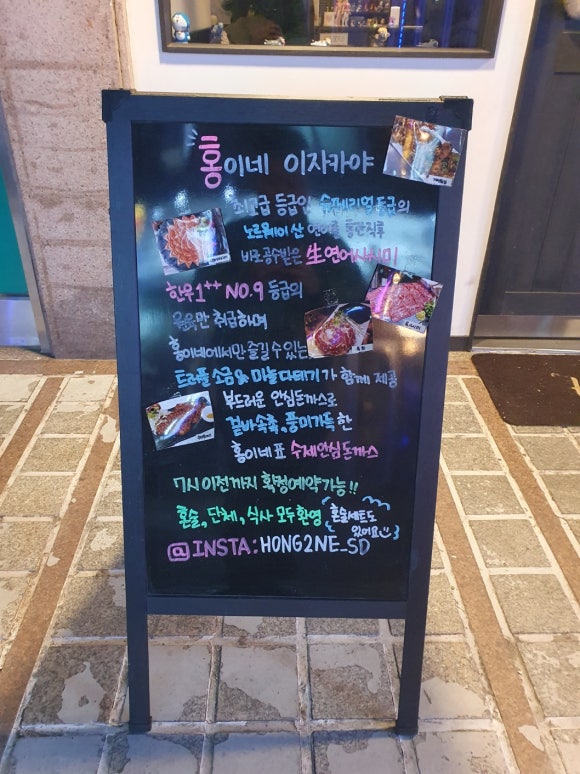 홍이네 이자카야
최고급 등급인 슈페리얼등급의
노르웨이 산 연어를 통관직후
바로공수받은 生연어사시미
한우1⁺⁺ NO.9 등급의
우육만 취급하며
홍이네에서만 즐길 수 있는
트러플 소금 & 마늘다데기가 함께 제공
부드러운 안심돈까스로
겉바속촉, 풍미가득 한
홍이네표 수제안심돈까스
7시 이전까지 확정예약가능!!
혼술, 단체, 식사 모두환영
혼술세트도
있어요
@INSTA: HONG2NE_SD